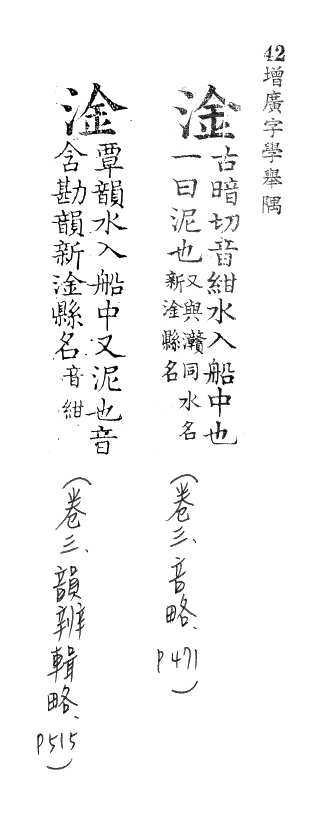 42增廣字學舉隅
淦
古暗切音紺水入船中也
一曰泥也又與灨同水名
新淦縣名
(卷三、音略、P471)
淦
覃韻水入船中又泥也音
含勘韻新淦縣名音紺
(卷三、韻辨輯略、P515)